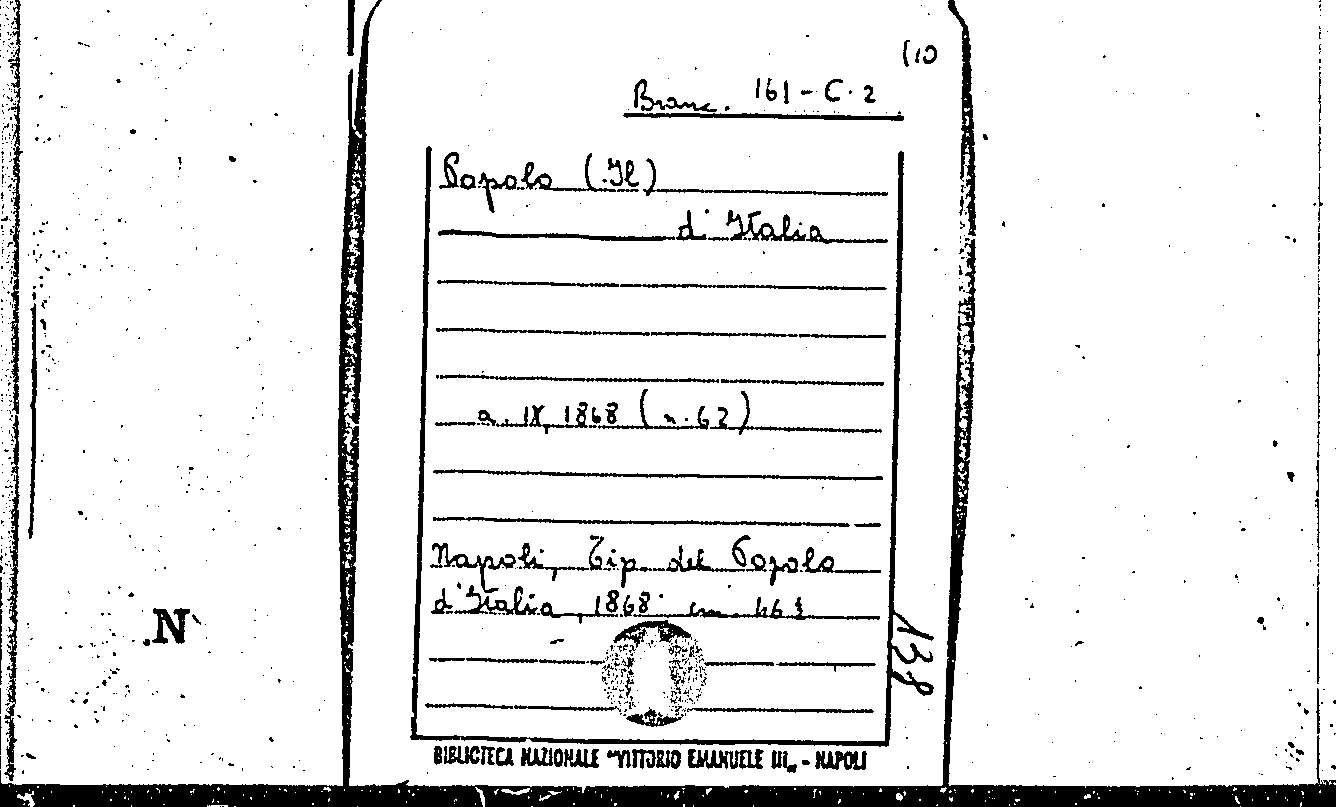 (10
Branc. 161-C.2
Popolo (Il)
d'Italia
a. IX, 1868 (n. 62)
Napoli, Tip. del Popolo
d'Italia, 1868 cm. 46
138
N
BIBLIOTECA NAZIONALE "VITTORIO EMANUELE III„ - NAPOLI